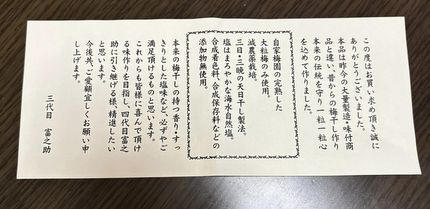 この度はお買い求め頂き誠に
ありがとうございました。
本品は昨今の大量製造・味付商
品と違い、昔からの梅干し作り
本来の伝統を守り一粒一粒心
を込めて作りました。
自家梅園の完熟した
大粒梅のみ使用。
減農薬栽培。
三日・三晩の天日干し製法。
塩はまろやかな海水自然塩。
合成着色料、合成保存料などの
添加物無使用。
本来の梅干しの持つ香り・すっ
きりとした塩味など、必ずやご
満足頂けるものと思います。
これからも皆様に喜んで頂け
る味作りを目指し、四代目富之
助に引き継げる様、精進したい
と思います。
今後共、ご愛顧宜しくお願い申
し上げます。
三代目 富之助